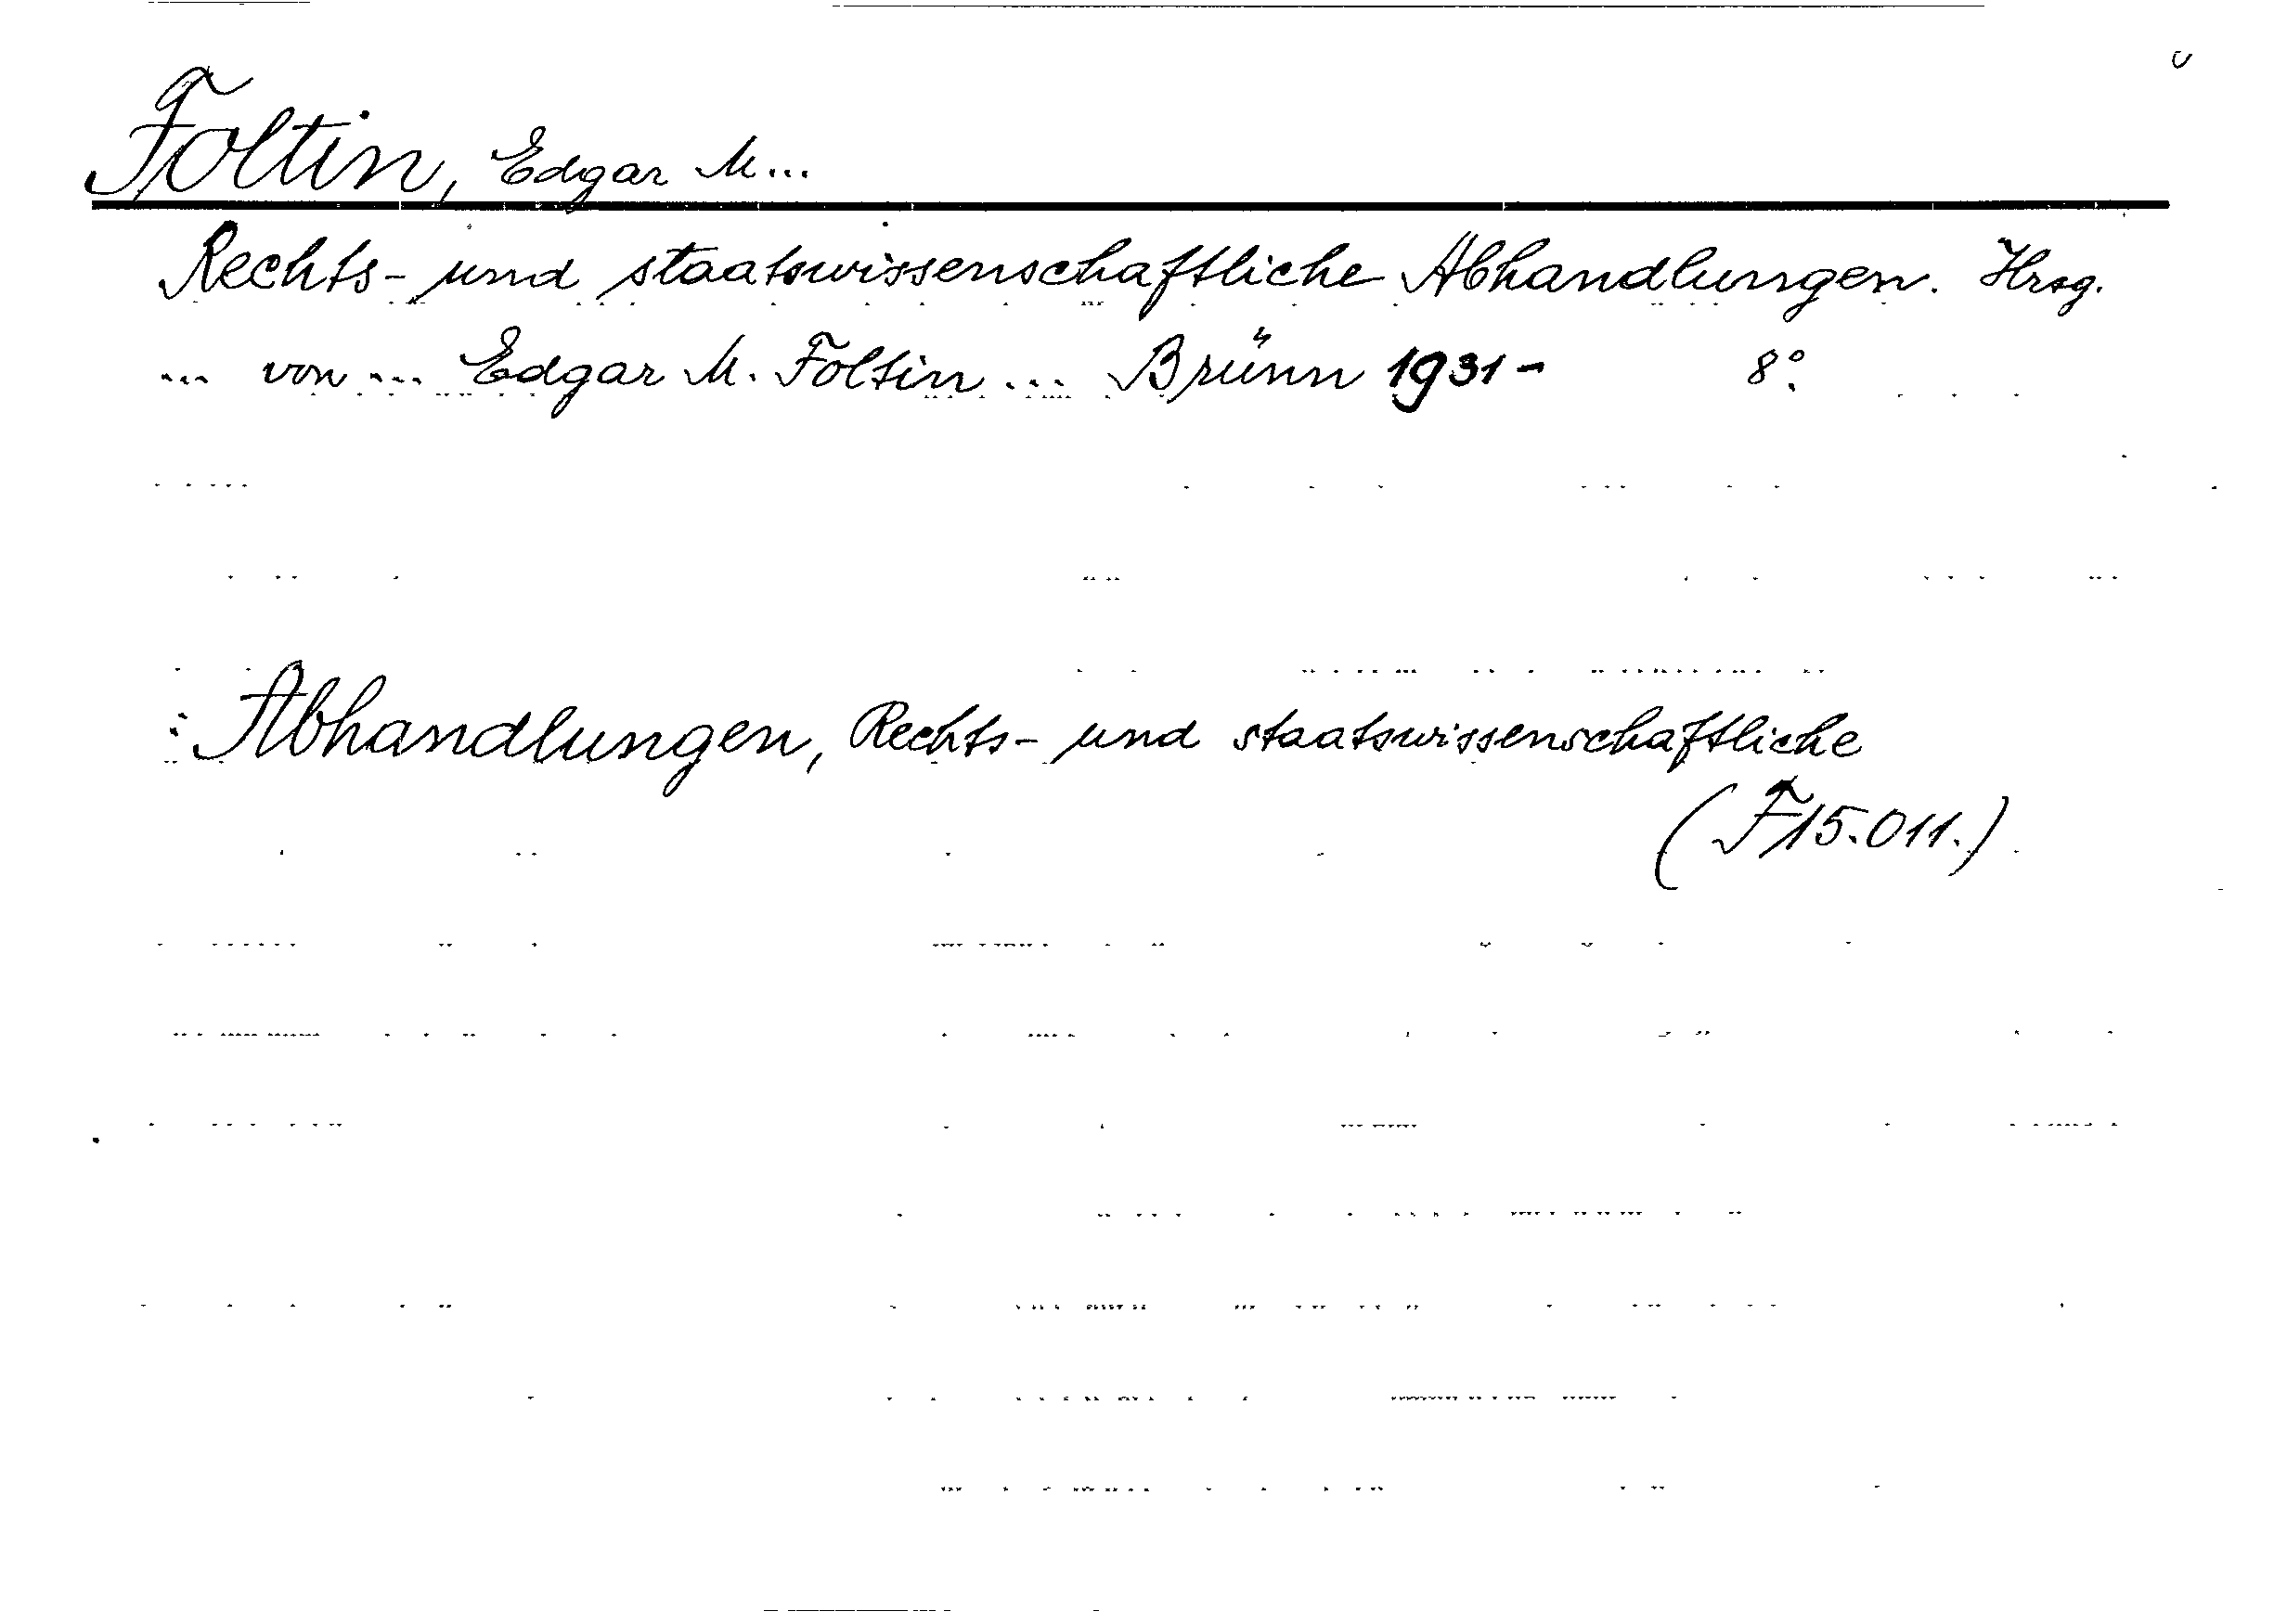 Foltin, Edgar M...
Rechts- und staatswissenschaftliche Abhandlungen. Hrsg.
... von ... Edgar M. Foltin ... Brünn 1931- 8°.
: Abhandlungen, Rechts- und staatswissenschaftliche
(F 15.011.)